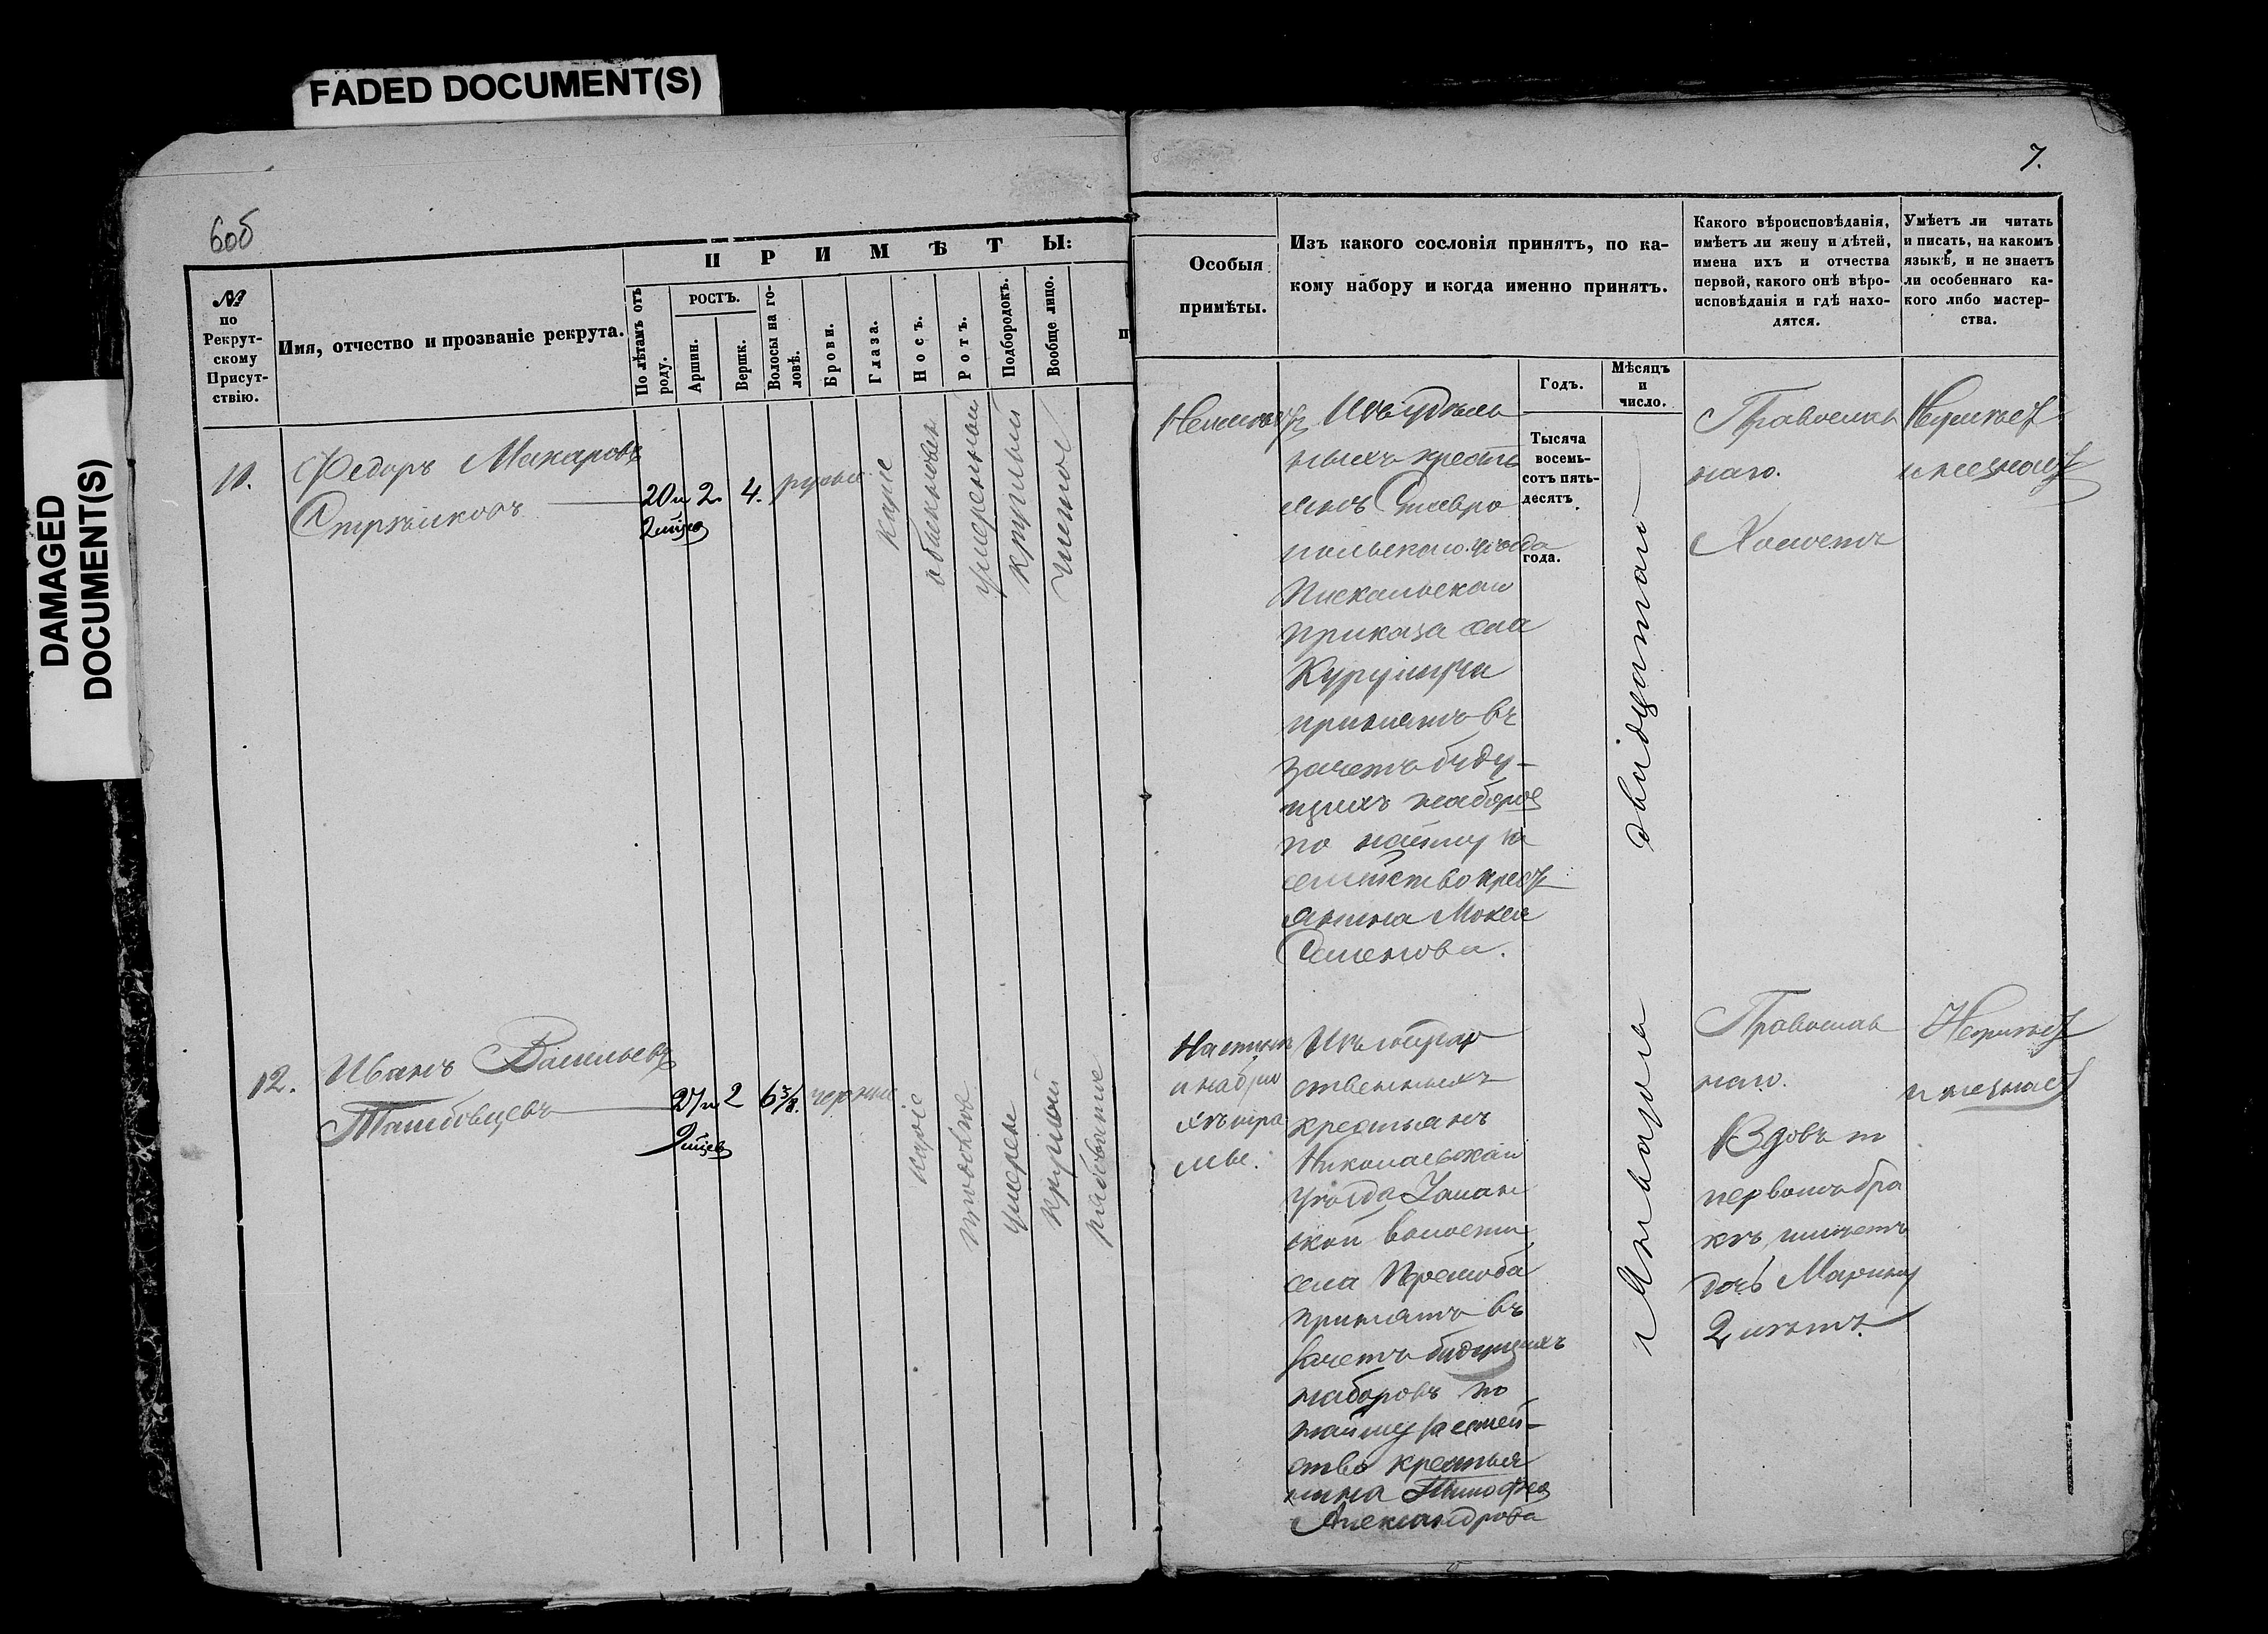 FADED DOCUMENT(S)
DAMAGED
DOCUMENT(S)
6об
7.
№
по
Рекрут-
скому
Присут-
ствію.
Имя, отчество и прозваніе рекрута.
ПРИМѢТЫ:
По лѣтамъ отъ
роду.
РОСТЪ.
Аршин.
Вершк.
Волосы на го-
ловѣ.
Брови.
Глаза.
Носъ.
Ротъ.
Подбородокъ.
Вообще лицо.
Особыя
примѣты.
Изъ какого сословія принятъ, по ка-
кому набору и когда именно принятъ.
Годъ.
Мѣсяцъ
и
число.
Какого вѣроисповѣданія,
имѣетъ ли жену и дѣтей,
имена ихъ и отчества
первой, какого онѣ вѣро-
исповѣданія и гдѣ нахо-
дятся.
Умѣетъ ли читать
и писать, на какомъ
языкѣ, и не знаетъ
ли особеннаго ка-
кого либо мастер-
ства.
11.
Федоръ Макаровъ
Стрѣлковъ
20 и
2 мѣся
2
4.
русые
каріе
обыкновен
умеренный
круглый
чистое
Неимеетъ
Изъ удѣль
ныхъ кресть
янъ Ставро
польскаго уѣзда
Пискальскаго
приказа села
принятъ въ
зачетъ буду-
щихъ наборов
по найму за
семейство крест
янина Мокея
Семенова.
Тысяча
восемь-
сотъ пять-
десятъ
года.
двадцатаго
Января
Православ
наго.
Холостъ
Неумеетъ
и незнаетъ
12.
Иванъ Васильевъ
Тамбовцевъ
27 и
2 мѣсяц
2
6 3/8.
черные
каріе
умерен
круглый
рябоватые
Изъ государ
ственныхъ
крестьянъ
Николаевскаго
уѣзда
ской волости
села
принятъ въ
зачетъ будущихъ
наборовъ по
найму за семей-
ство крестья
нина Тимофея
Александрова
Православ
наго.
Вдовъ
первомъ бра
кѣ имѣетъ
дочь Марину
2 лѣтъ.
Неумеетъ
и незнаетъ